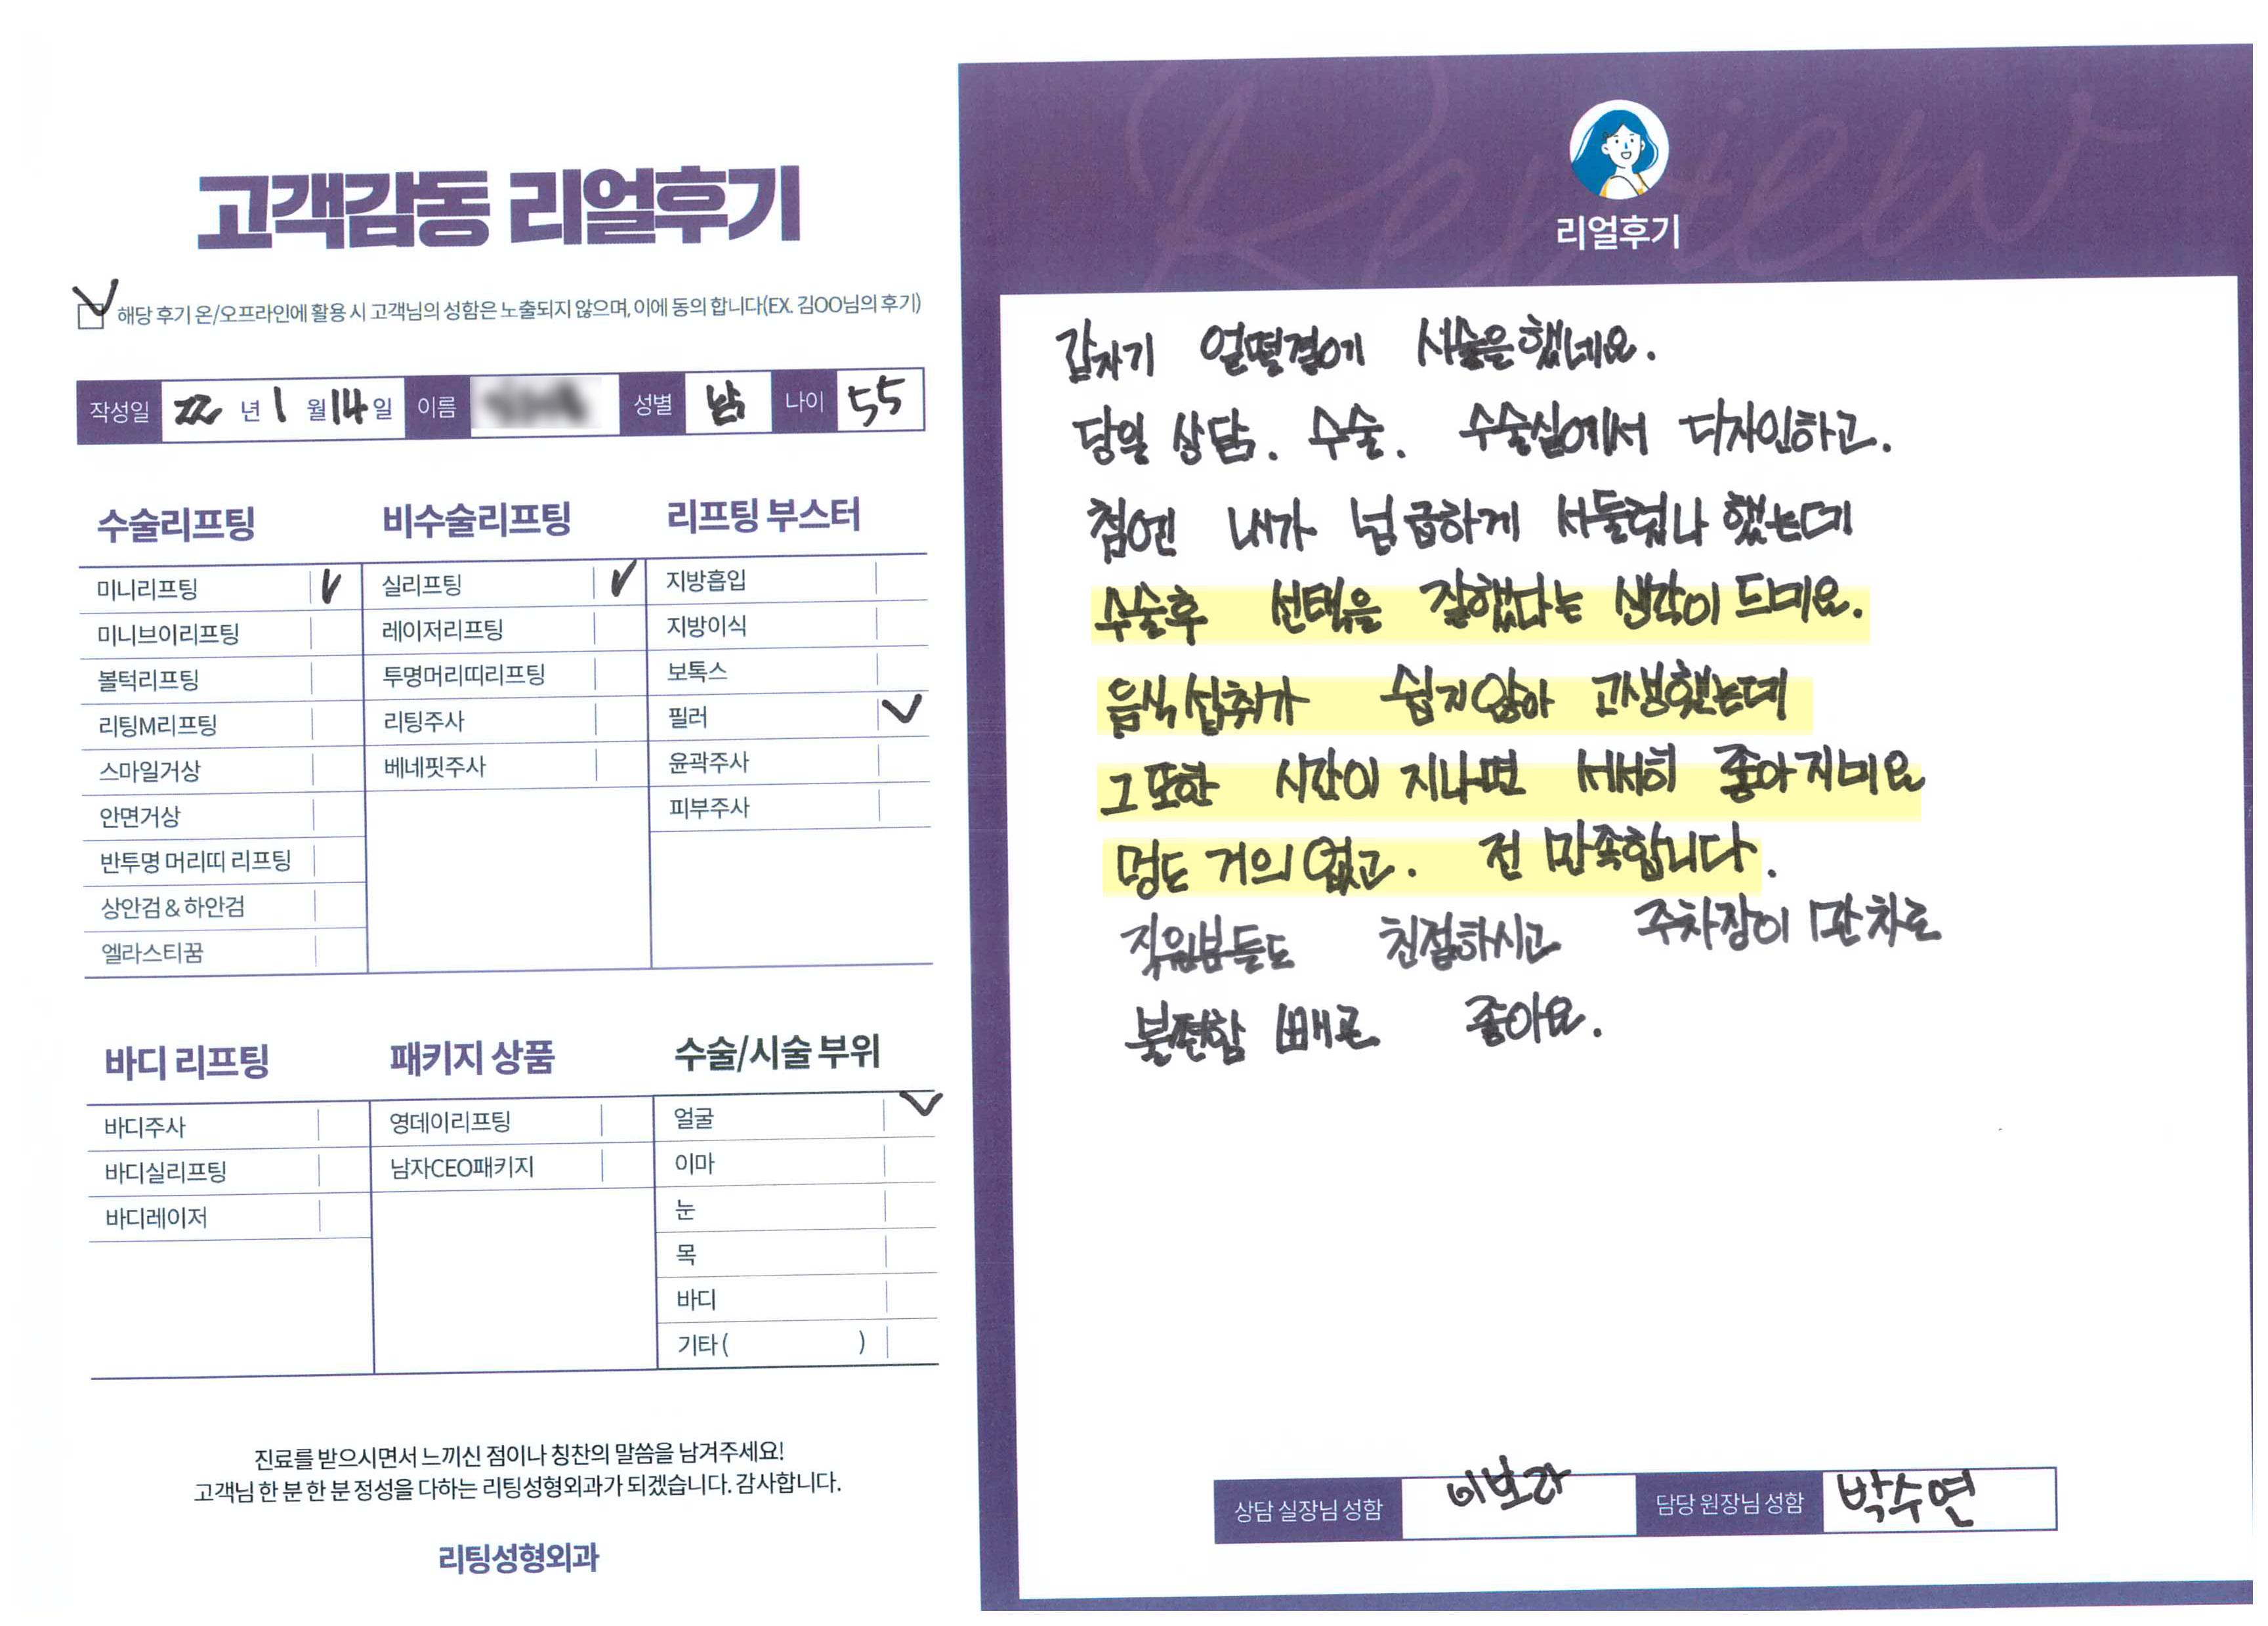 고객감동 리얼후기
해당 후기 온/오프라인에 활용 시 고객님의 성함은 노출되지 않으며, 이에 동의 합니다(EX. 김OO님의 후기)
작성일 22 년 1 월 14 일 이름 성별 남 나이 55
수술리프팅
미니리프팅
미니브이리프팅
볼턱리프팅
리팅M리프팅
스마일거상
안면거상
반투명 머리띠 리프팅
상안검 & 하안검
엘라스티꿈
비수술리프팅
실리프팅
레이저리프팅
투명머리띠리프팅
리팅주사
베네핏주사
리프팅 부스터
지방흡입
지방이식
보톡스
필러
윤곽주사
피부주사
바디 리프팅
바디주사
바디실리프팅
바디레이저
패키지 상품
영데이리프팅
남자CEO패키지
수술/시술 부위
얼굴
이마
눈
목
바디
기타 ( )
진료를 받으시면서 느끼신 점이나 칭찬의 말씀을 남겨주세요!
고객님 한 분 한 분 정성을 다하는 리팅성형외과가 되겠습니다. 감사합니다.
리팅성형외과
Review
리얼후기
갑자기 얼떨결에 시술을했네요.
당일 상담. 수술. 수술실에서 디자인하고.
첨엔 내가 넘 급하게 서둘렀나 했는데
수술후 선택을 잘했다는 생각이 드네요.
음식섭취가 쉽지않아 고생했는데
그 또한 시간이 지나면 서서히 좋아지네요
멍도 거의 없고. 전 만족합니다.
직원분들도 친절하시고 주차장이 만차로
불편함 빼곤 좋아요.
상담 실장님 성함 이보라 담당 원장님 성함 박수연